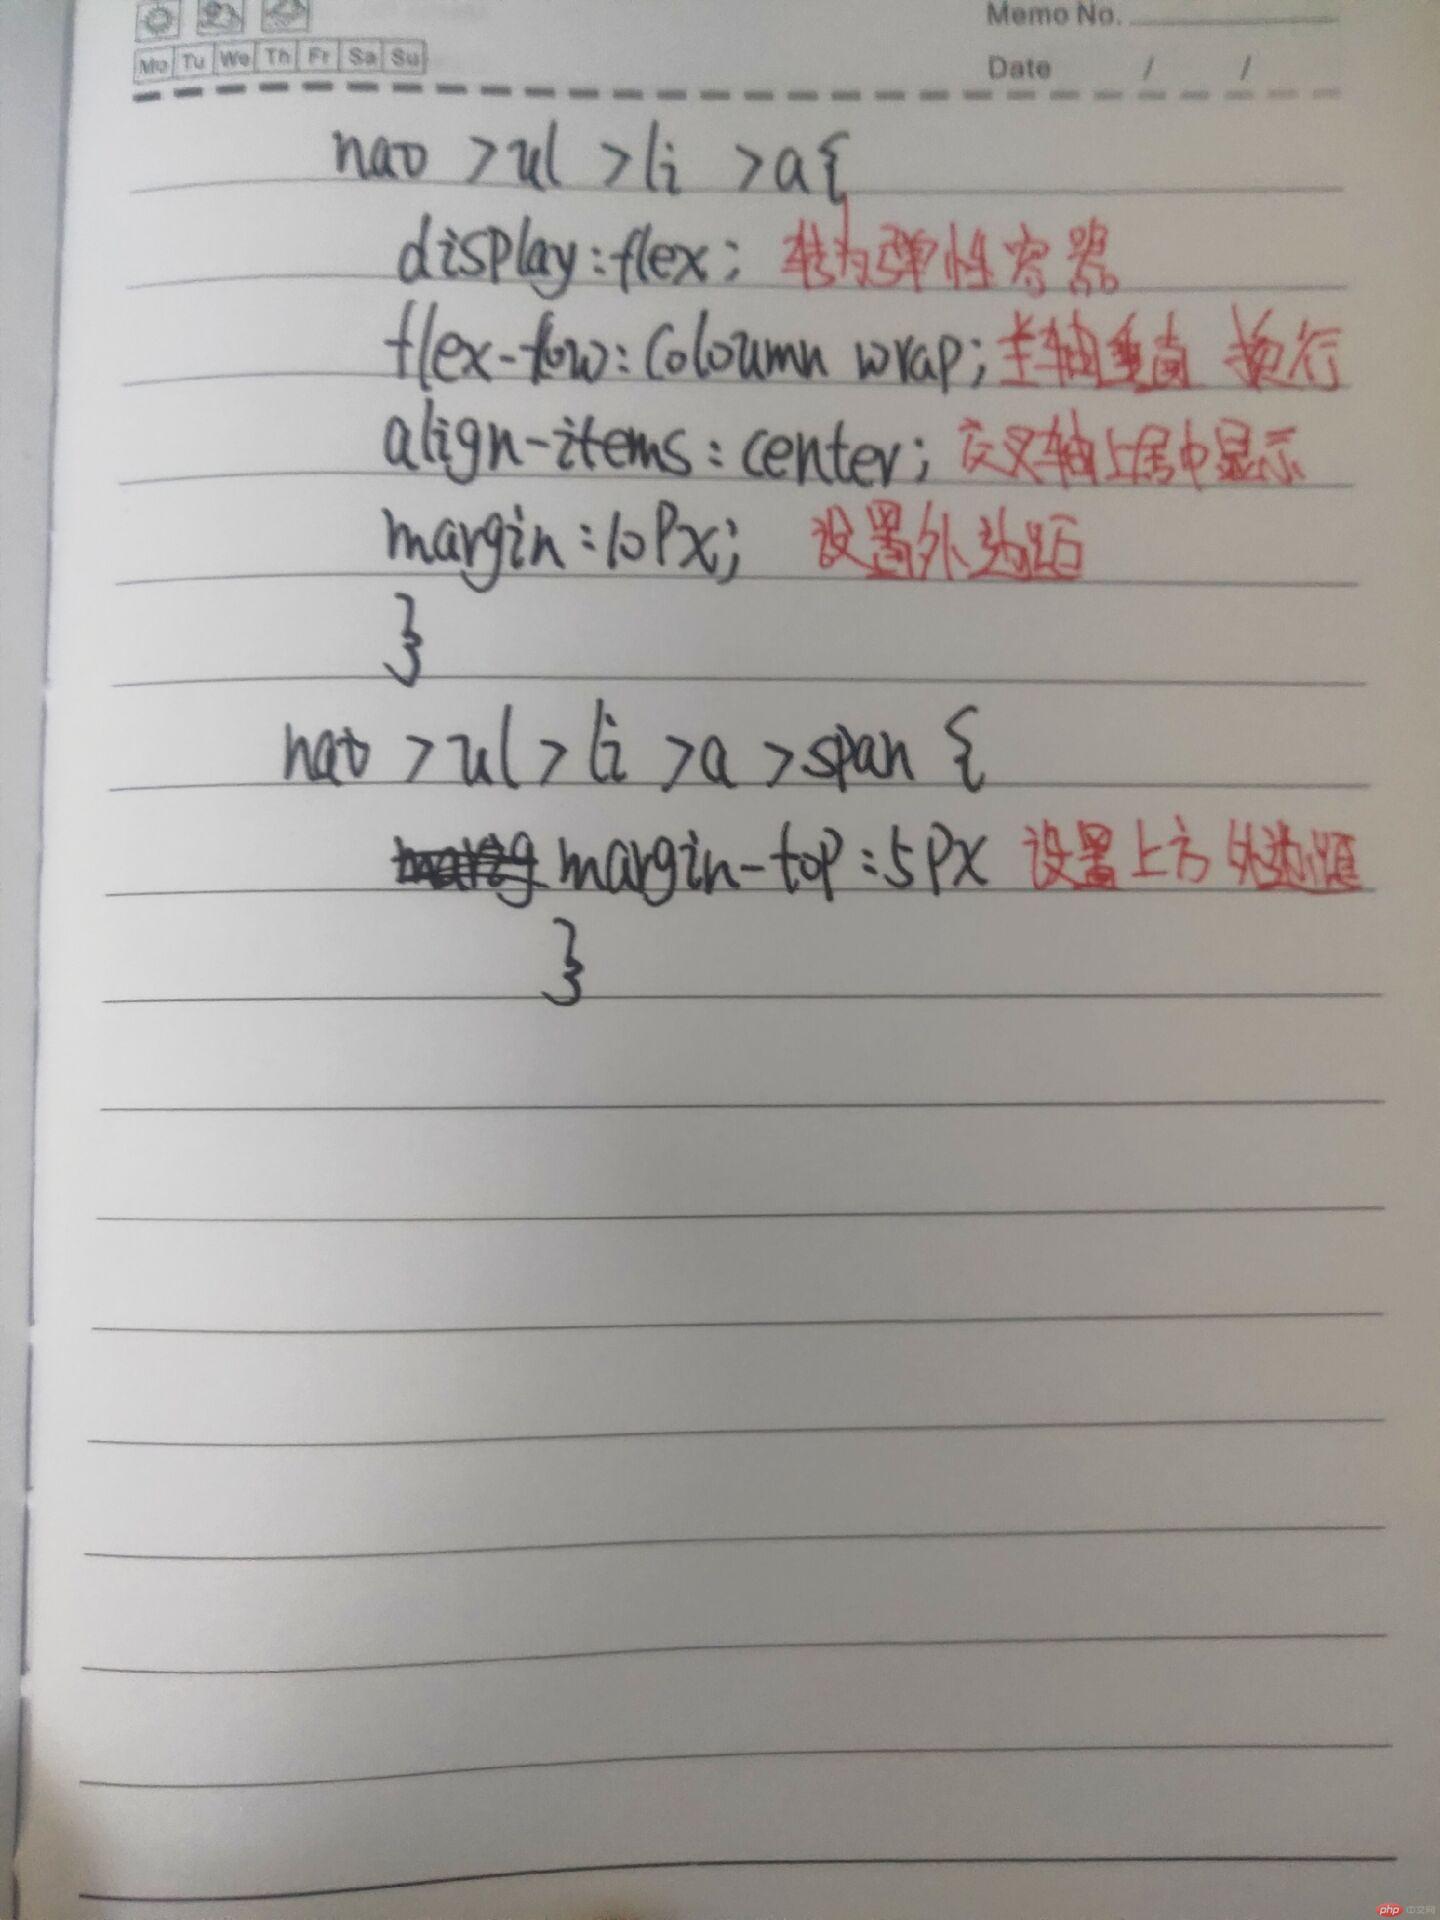 Memo No.
Mo Tu We Th Fr Sa Su
Date / /
nav >ul >li >a{
display:flex; 转为弹性容器
flex-flow:Coloumn wrap; 主轴垂直 换行
align-items:center; 交叉轴上居中显示
margin:10Px; 设置外边距
}
nav >ul >li >a >span {
margin-top:5Px 设置上方外边距
}
php 中文网